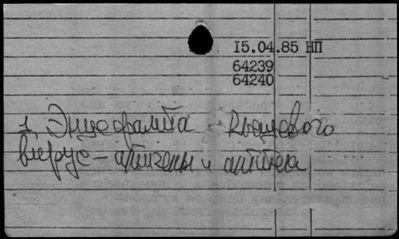 15.04.85 НП
64239
64240
1. Энцефалита - клещевого
вирус - антигены и антитела